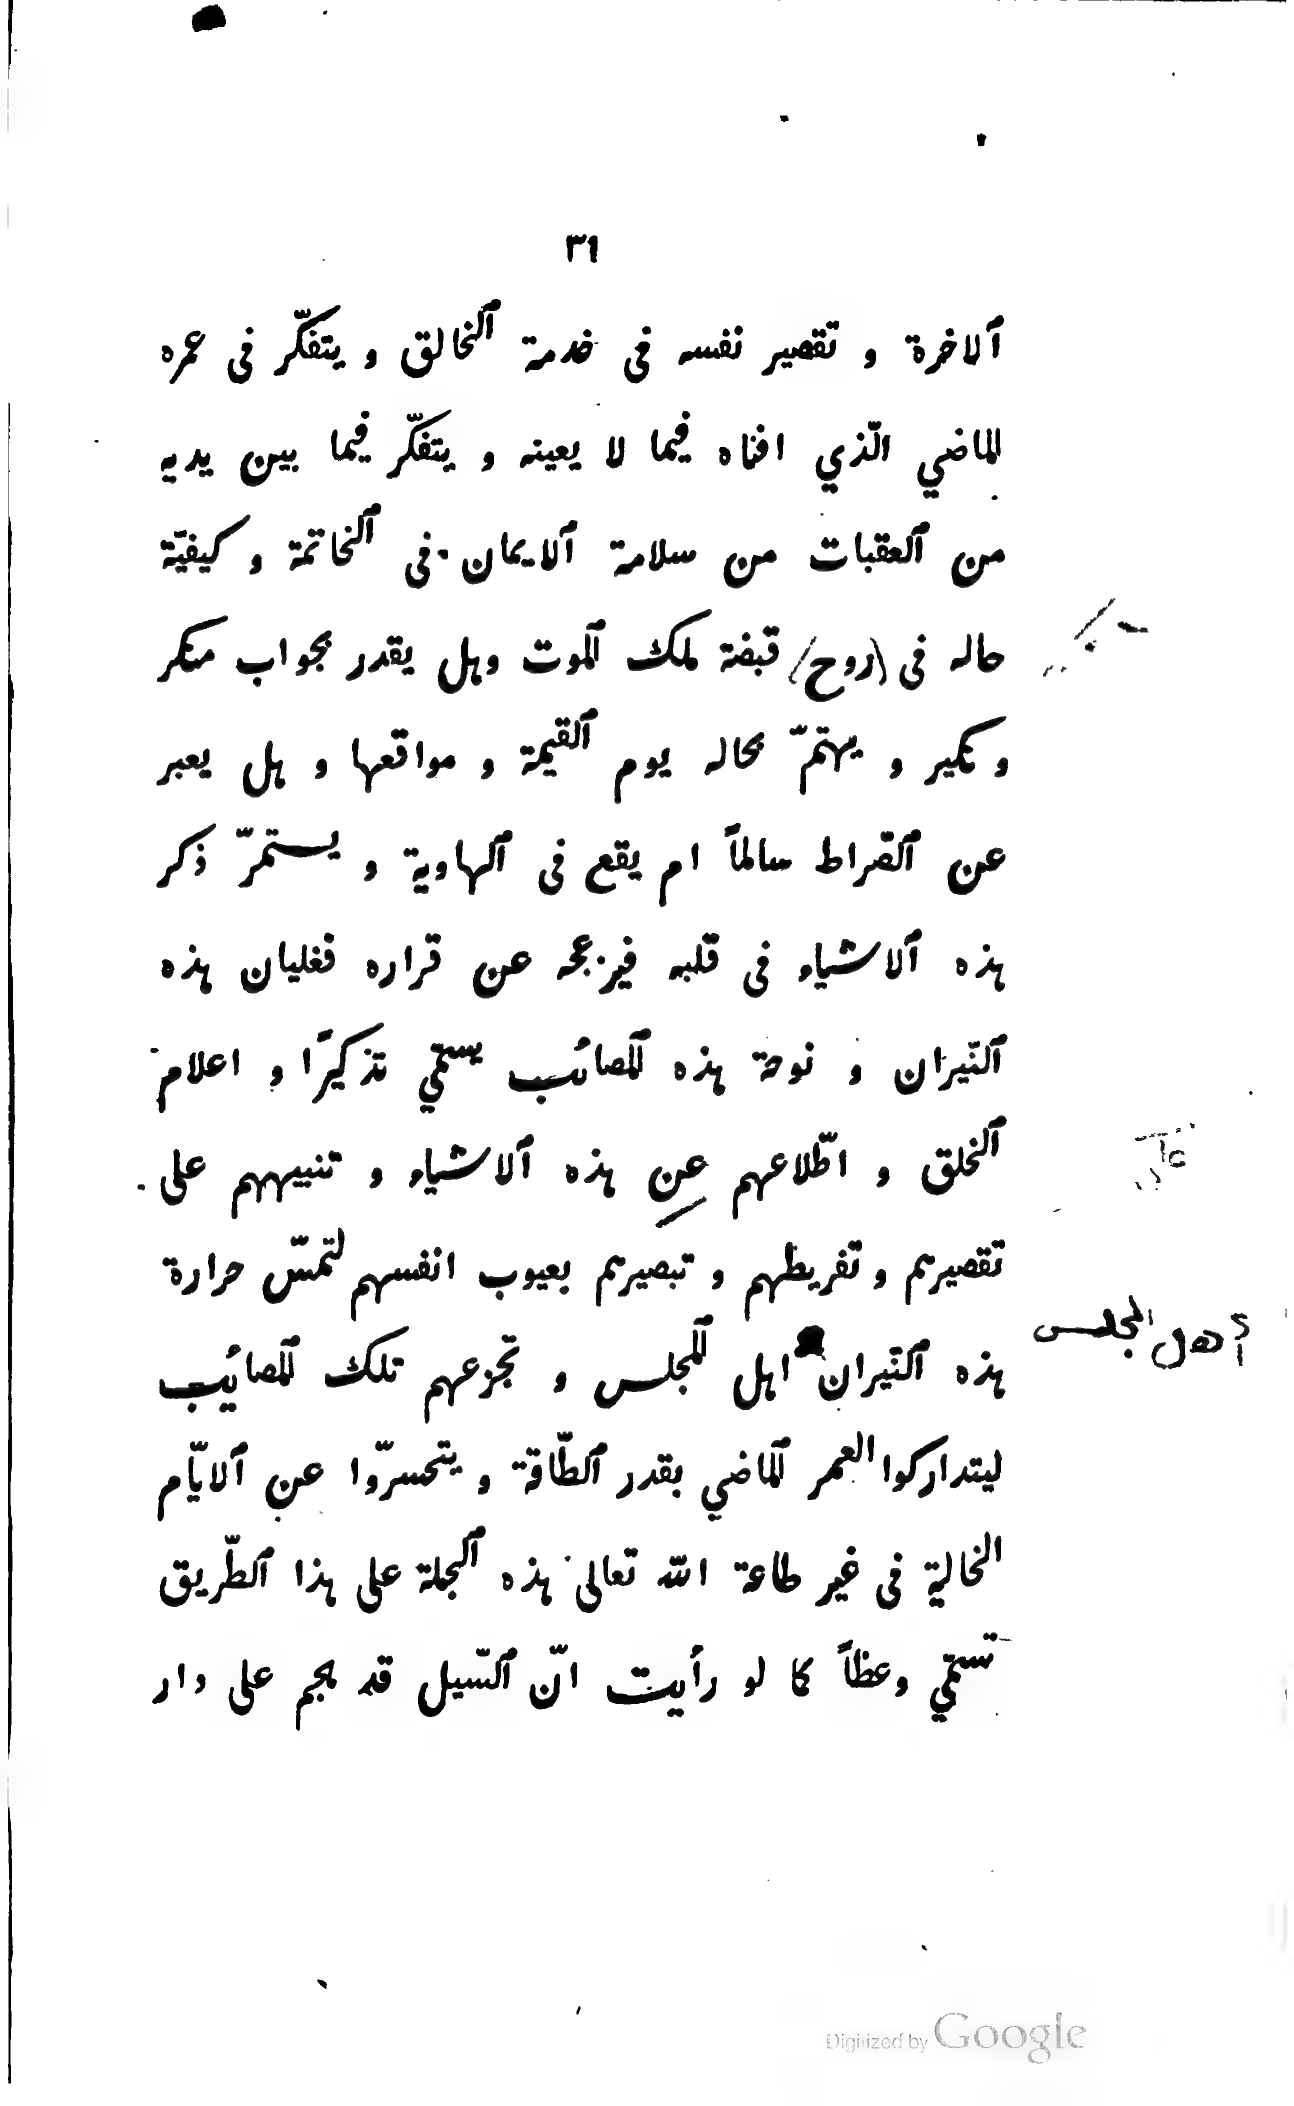 ٣٦
ٱلاخرة و تقصير نفسه فى خدمة ٱلخالق و يتفكّر فى عمره
الماضي الّذي افناه فيما لا يعينه و يتفكّر فيما بين يديه
من ٱلعقبات من سلامة ٱلايمان فى ٱلخاتمة و كيفيّة
حاله فى (روح) قبضة ملك ٱلموت وهل يقدر بجواب منكر
و نكير و يهتمّ بحاله يوم ٱلقيمة و مواقعها و هل يعبر
عن ٱلصّراط سالماً ام يقع فى ٱلهاوية و يستمرّ ذكر
هذه ٱلاشياء فى قلبه فيزعجه عن قراره فغليان هذه
ٱلنّيران و نوحة هذه ٱلمصائب يسمّي تذكيرًا و اعلام
ٱلخلق و اطّلاعهم عن هذه ٱلاشياء و تنبيههم على
تقصيرهم و تفريطهم و تبصيرهم بعيوب انفسهم لتمسّ حرارة
هذه ٱلنّيران اهل ٱلمجلس و تجزعهم تلك ٱلمصائب
أهل المجلس
ليتداركوا العمر ٱلماضي بقدر ٱلطّاقة و يتحسرّوا عن ٱلايّام
الخالية فى غير طاعة الله تعالى هذه ٱلجملة على هذا ٱلطّريق
تسمّي وعظاً كما لو رأيت انّ ٱلسّيل قد هجم على دار
Digitized by Google